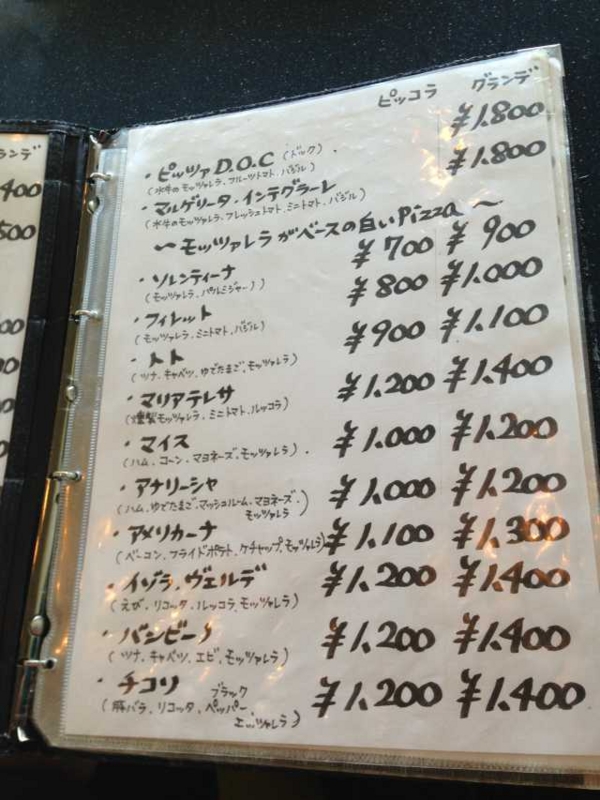 ピッコラ グランデ
・ピッツァ D.O.C (ドック) ¥1.800
(水牛のモッツァレラ、フルーツトマト、バジル)
・マルゲリータ・インテグラーレ ¥1.800
(水牛のモッツァレラ、フレッシュトマト、ミニトマト、バジル)
〜モッツァレラがベースの白いPizza〜
・ソレンティーナ ¥700 ¥900
(モッツァレラ、パルミジャーノ)
・フィレット ¥800 ¥1.000
(モッツァレラ、ミニトマト、バジル)
・トト ¥900 ¥1.100
(ツナ、キャベツ、ゆでたまご、モッツァレラ)
・マリアテレサ ¥1.200 ¥1.400
(燻製モッツァレラ、ミニトマト、ルッコラ)
・マイス ¥1.000 ¥1.200
(ハム、コーン、マヨネーズ、モッツァレラ)
・アナリーシャ ¥1.000 ¥1.200
(ハム、ゆでたまご、マッシュルーム、マヨネーズ、
モッツァレラ)
・アメリカーナ ¥1.100 ¥1.300
(ベーコン、フライドポテト、ケチャップ、モッツァレラ)
・イゾラ・ヴェルデ ¥1.200 ¥1.400
(えび、リコッタ、ルッコラ、モッツァレラ)
・バンビーノ ¥1.200 ¥1.400
(ツナ、キャベツ、エビ、モッツァレラ)
・チコリ ¥1.200 ¥1.400
(豚バラ、リコッタ、ブラックペッパー、
モッツァレラ)
ランデ
400
500